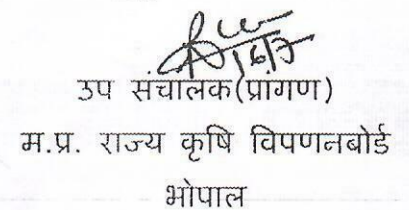 उप संचालक(प्रांगण)
म.प्र. राज्य कृषि विपणनबोर्ड
भोपाल